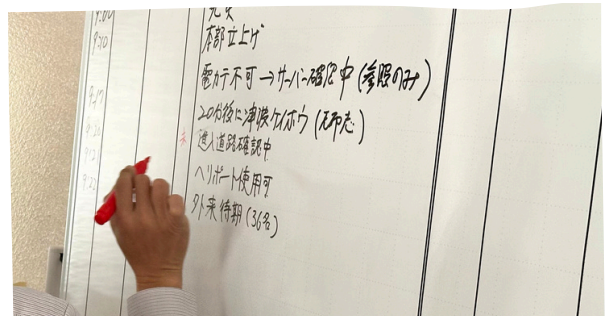 9:10 本部立上げ
電カテ不可→サーバー確認中(参照のみ)
9:17 20分後に津波ケイホウ
進入道路確認中
ヘリポート使用可
9:22 外来待期(36名)